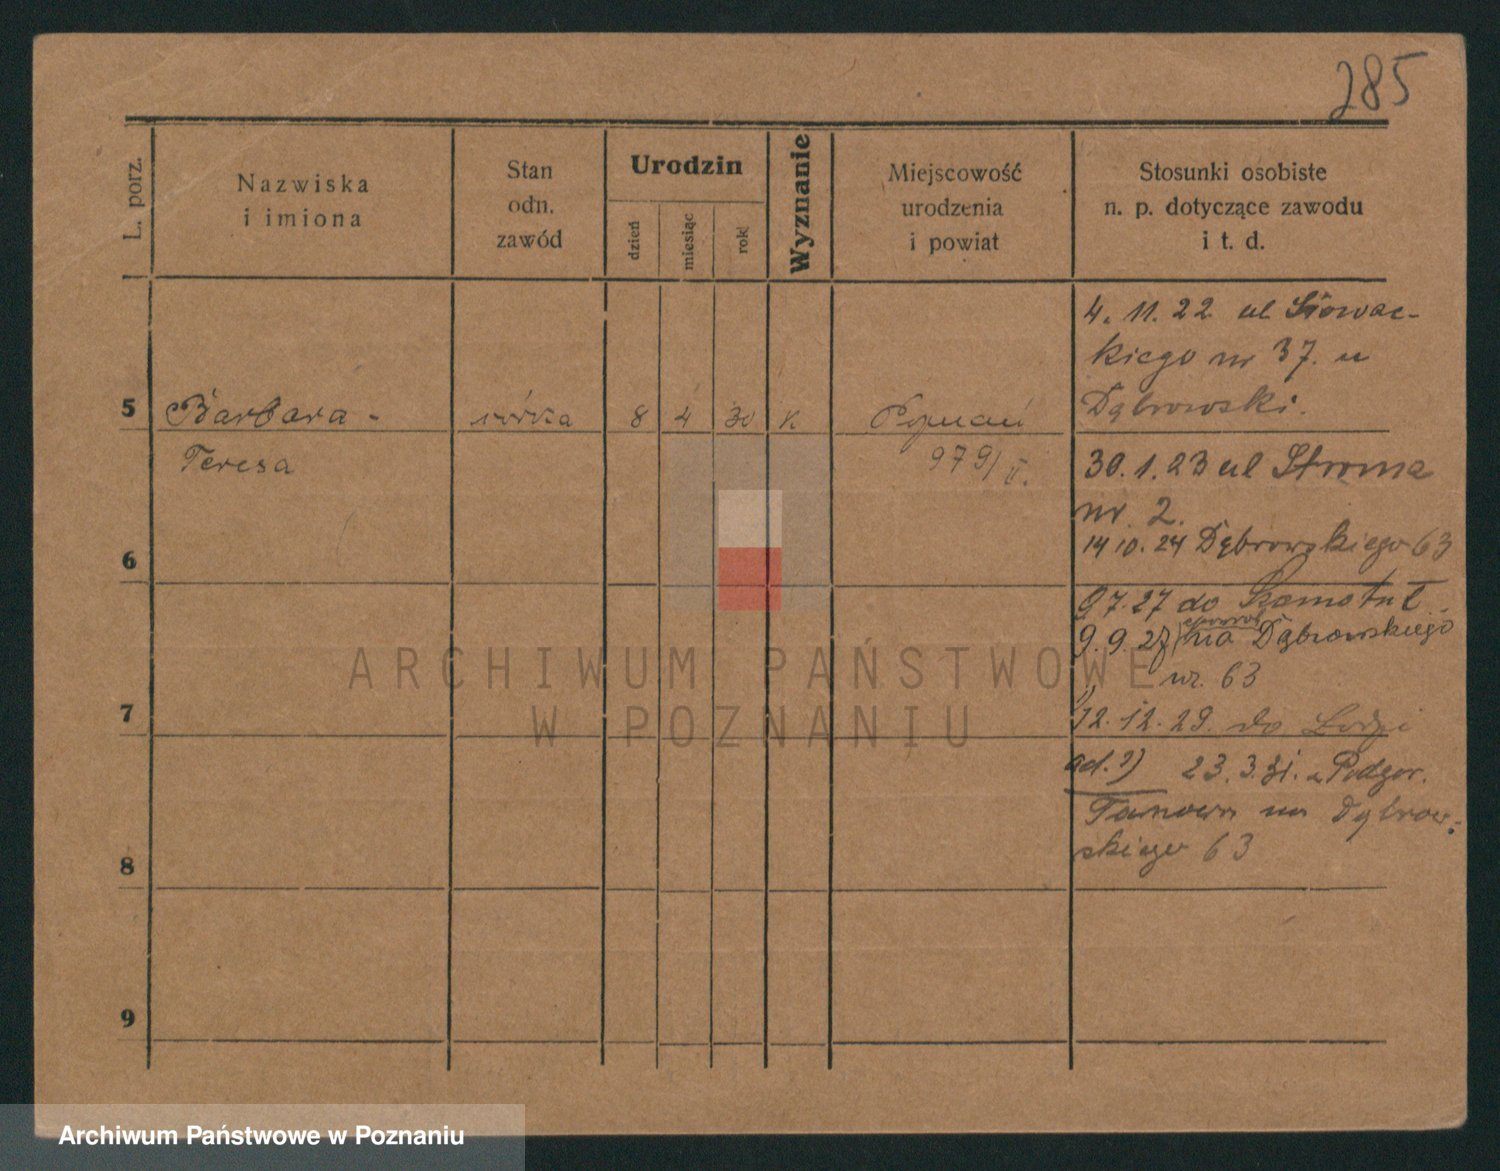 285
L. porz.
Nazwiska
i imiona
Stan
odn.
zawód
Urodzin
dzień
miesiąc
rok
Wyznanie
Miejscowość
urodzenia
i powiat
Stosunki osobiste
n. p. dotyczące zawodu
i t. d.
4. 11. 22 ul Słowac-
kiego nr 37. u
Dąbrowski.
5 Barbara - córka 8 4 30 K Poznań
Teresa 979/V.
30.1.23 ul Stroma
nr. 2.
14 10. 24 Dąbrowskiego 63
6
9 7.27 do Szamotuł
9. 9. 27 na Dąbrowskiego
nr. 63
7
12. 12. 29. do Łodzi
ad. 1) 23. 3. 31. z Podgor.
na Dąbrow-
skiego 63
8
9
ARCHIWUM PAŃSTWOWE
W POZNANIU
Archiwum Państwowe w Poznaniu